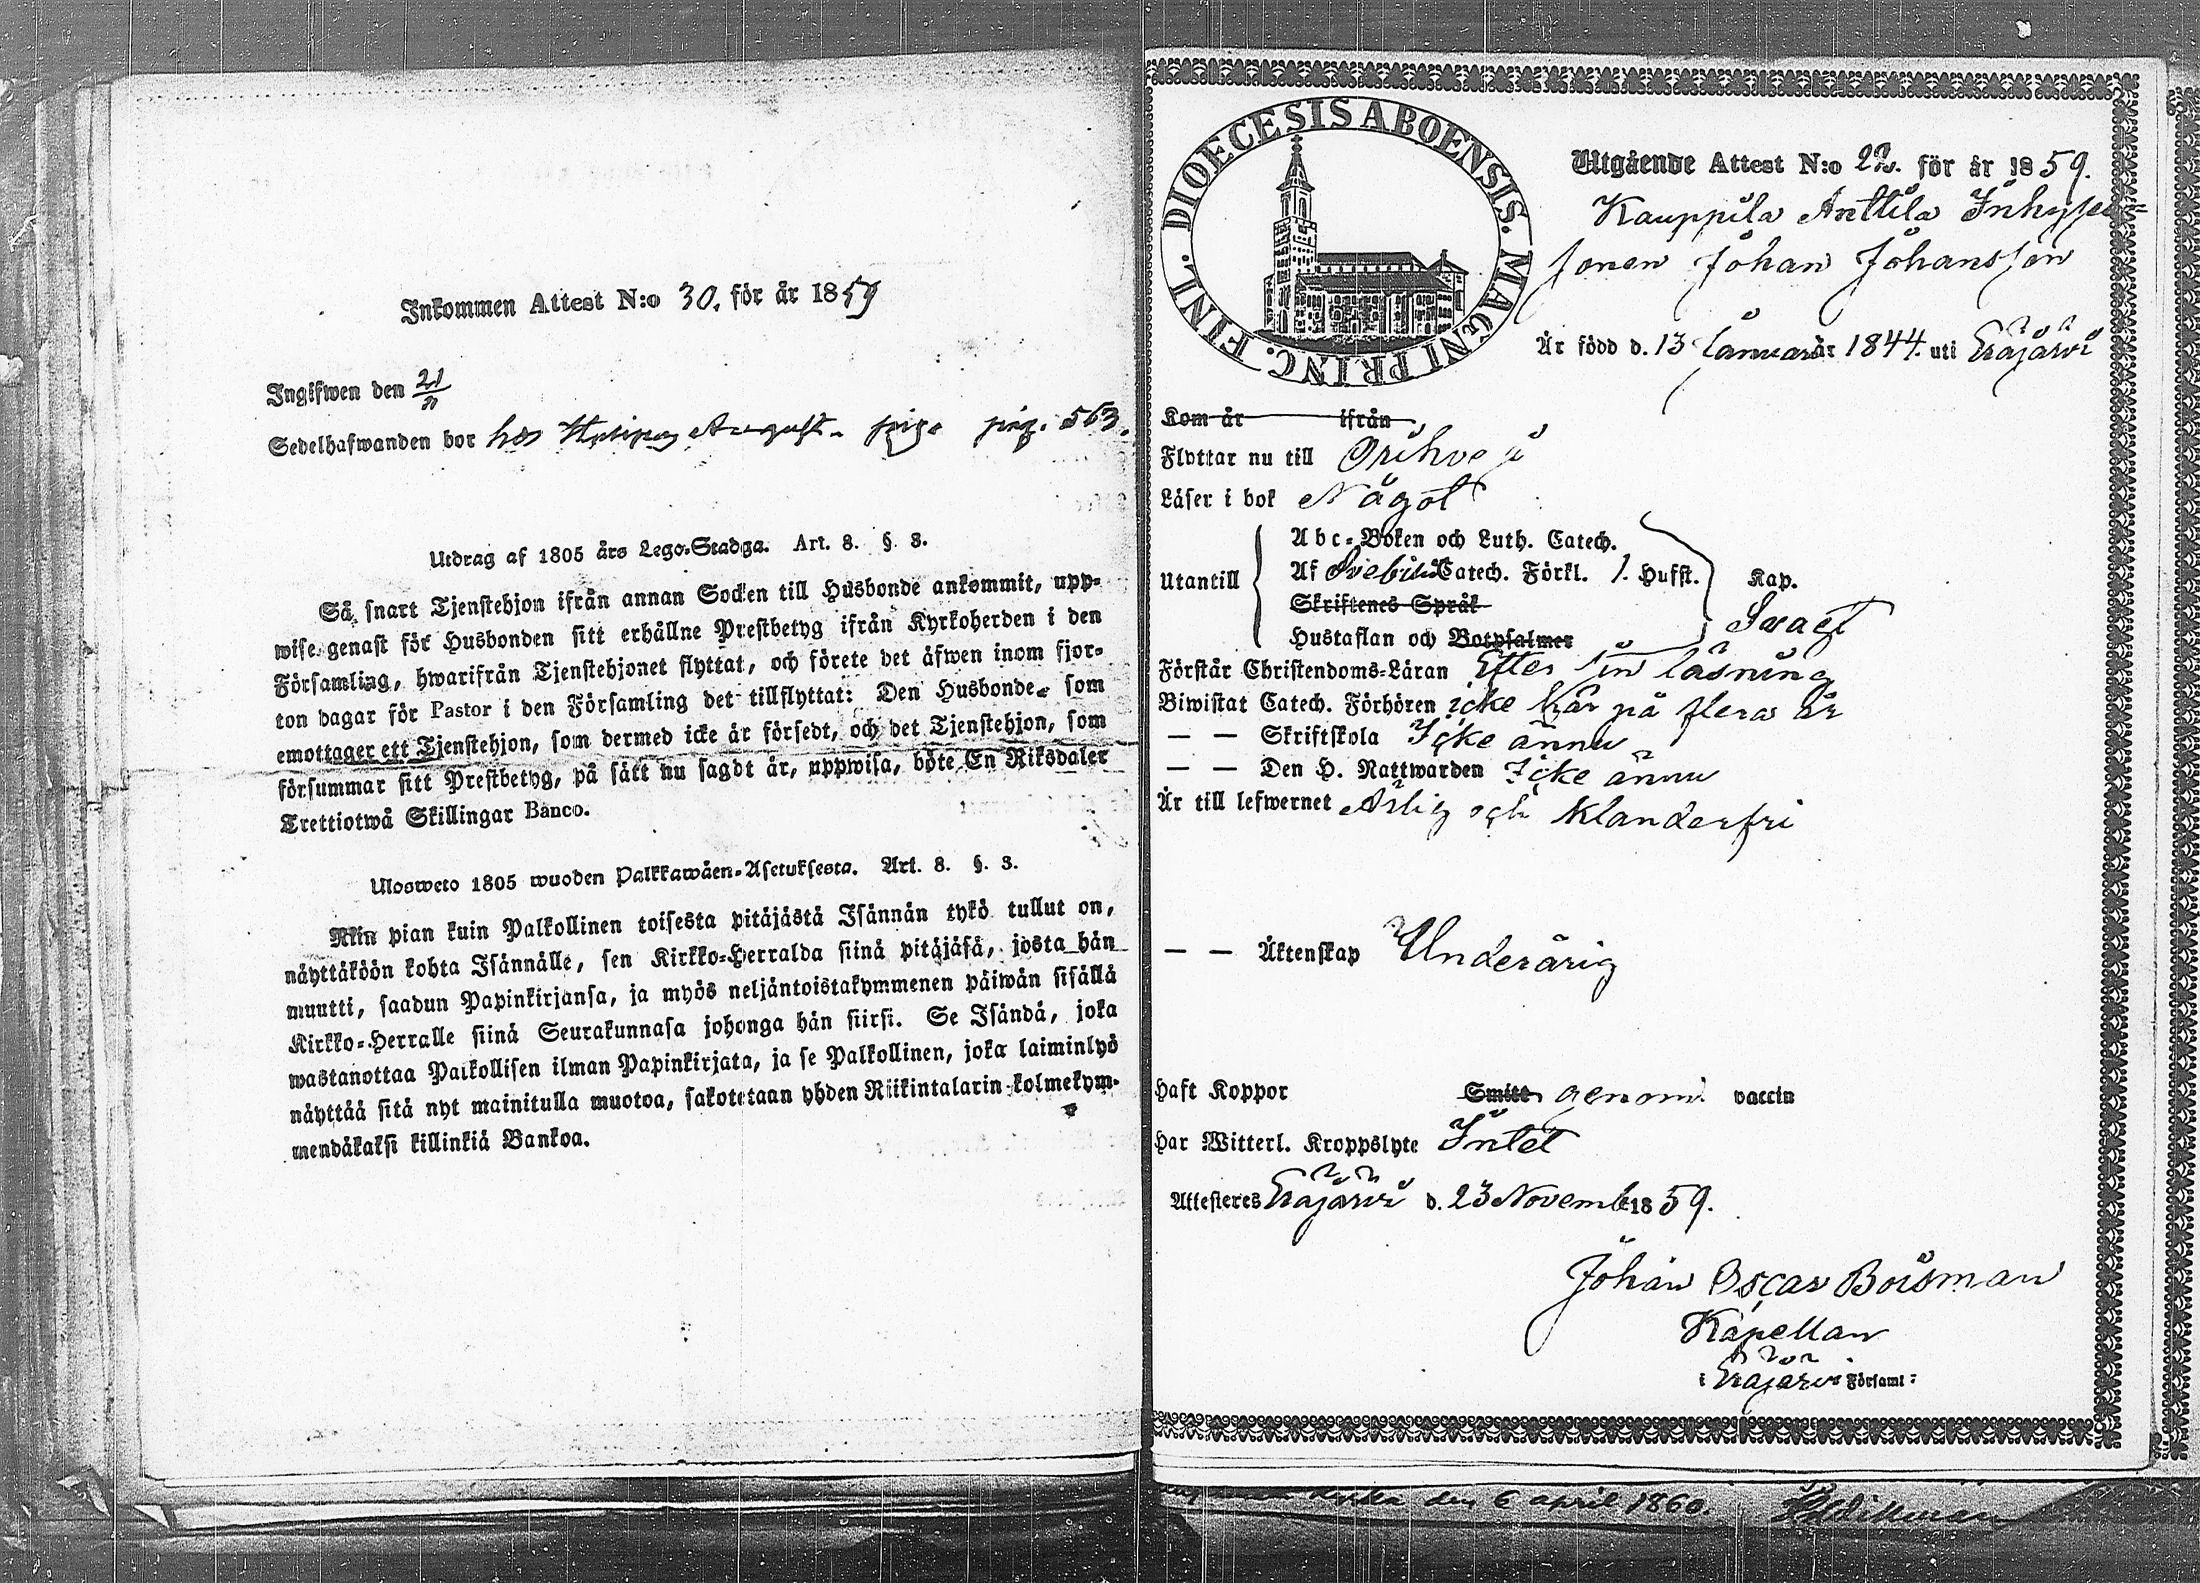 Inkommen Attest N:o 30. för år 1859
Ingifwen den 21/11
Sedelhafwanden bor hos August. pag. 563.
Utdrag af 1805 års Lego-Stadga. Art. 8. §. 3.
Så snart Tjenstehjon ifrån annan Socken till Husbonde ankommit, upp-
wise genast för Husbonden sitt erhållne Prestbetyg ifrån Kyrkoherden i den
Församling, hwarifrån Tjenstehjonet flyttat, och förete det äfwen inom fjor-
ton dagar för Pastor i den Församling det tillflyttat: Den Husbonde, som
emottager ett Tjenstehjon, som dermed icke är försedt, och det Tjenstehjon, som
försummar sitt Prestbetyg, på sätt nu sagdt är, uppwisa, böte En Riksdaler
Trettiotwå Skillingar Banco.
Ulosweto 1805 wuoden Palkkawäen-Asetuksesta. Art. 8. §. 3.
Niin pian kuin Palkollinen toisesta pitäjästä Isännän tykö tullut on,
näyttäköön kohta Isännälle, sen Kirkko-Herralda siinä pitäjäsä, josta hän
muutti, saadun Papinkirjansa, ja myös neljäntoistakymmenen päiwän sisällä
Kirkko-Herralle siinä Seurakunnasa johonga hän siirsi. Se Isändä, joka
wastanottaa Palkollisen ilman Papinkirjata, ja se Palkollinen, joka laiminlyö
näyttää sitä nyt mainitulla muotoa, sakotetaan yhden Riikintalarin kolmekym-
mendäkaksi killinkiä Bankoa.
DIOECESIS ABOENSIS. MAGNI PRINC. FINL.
Utgående Attest N:o 22. för år 1859.
Kauppila Anttila Inhyses=
sonen Johan Johansson
Är född d. 13 Januari år 1844. uti Eräjärvi
Kom år ifrån
Flyttar nu till Orihvesi
Läser i bok Något
Utantill
Abc-Boken och Luth. Catech.
Af Svebilii Catech. Förkl. 1. Hufst. Kap.
Skriftenes Språk
Hustaflan och Botpsalmer
Svagt
Förstår Christendoms-Läran Efter sin läsning
Biwistat Catech. Förhören icke här på flera år
— — Skriftskola Icke ännu
— — Den H. Nattwarden Icke ännu
Är till lefwernet Ärlig och Klanderfri
— — Äktenskap Underårig
Haft Koppor Smitt genom vaccin
Har Witterl. Kroppslyte Intet
Attesteres Eräjärvi d. 23 Novemb 1859.
Johan Oscar Boisman
Kapellan
i Eräjärvi Församl:
den 6 april 1860.